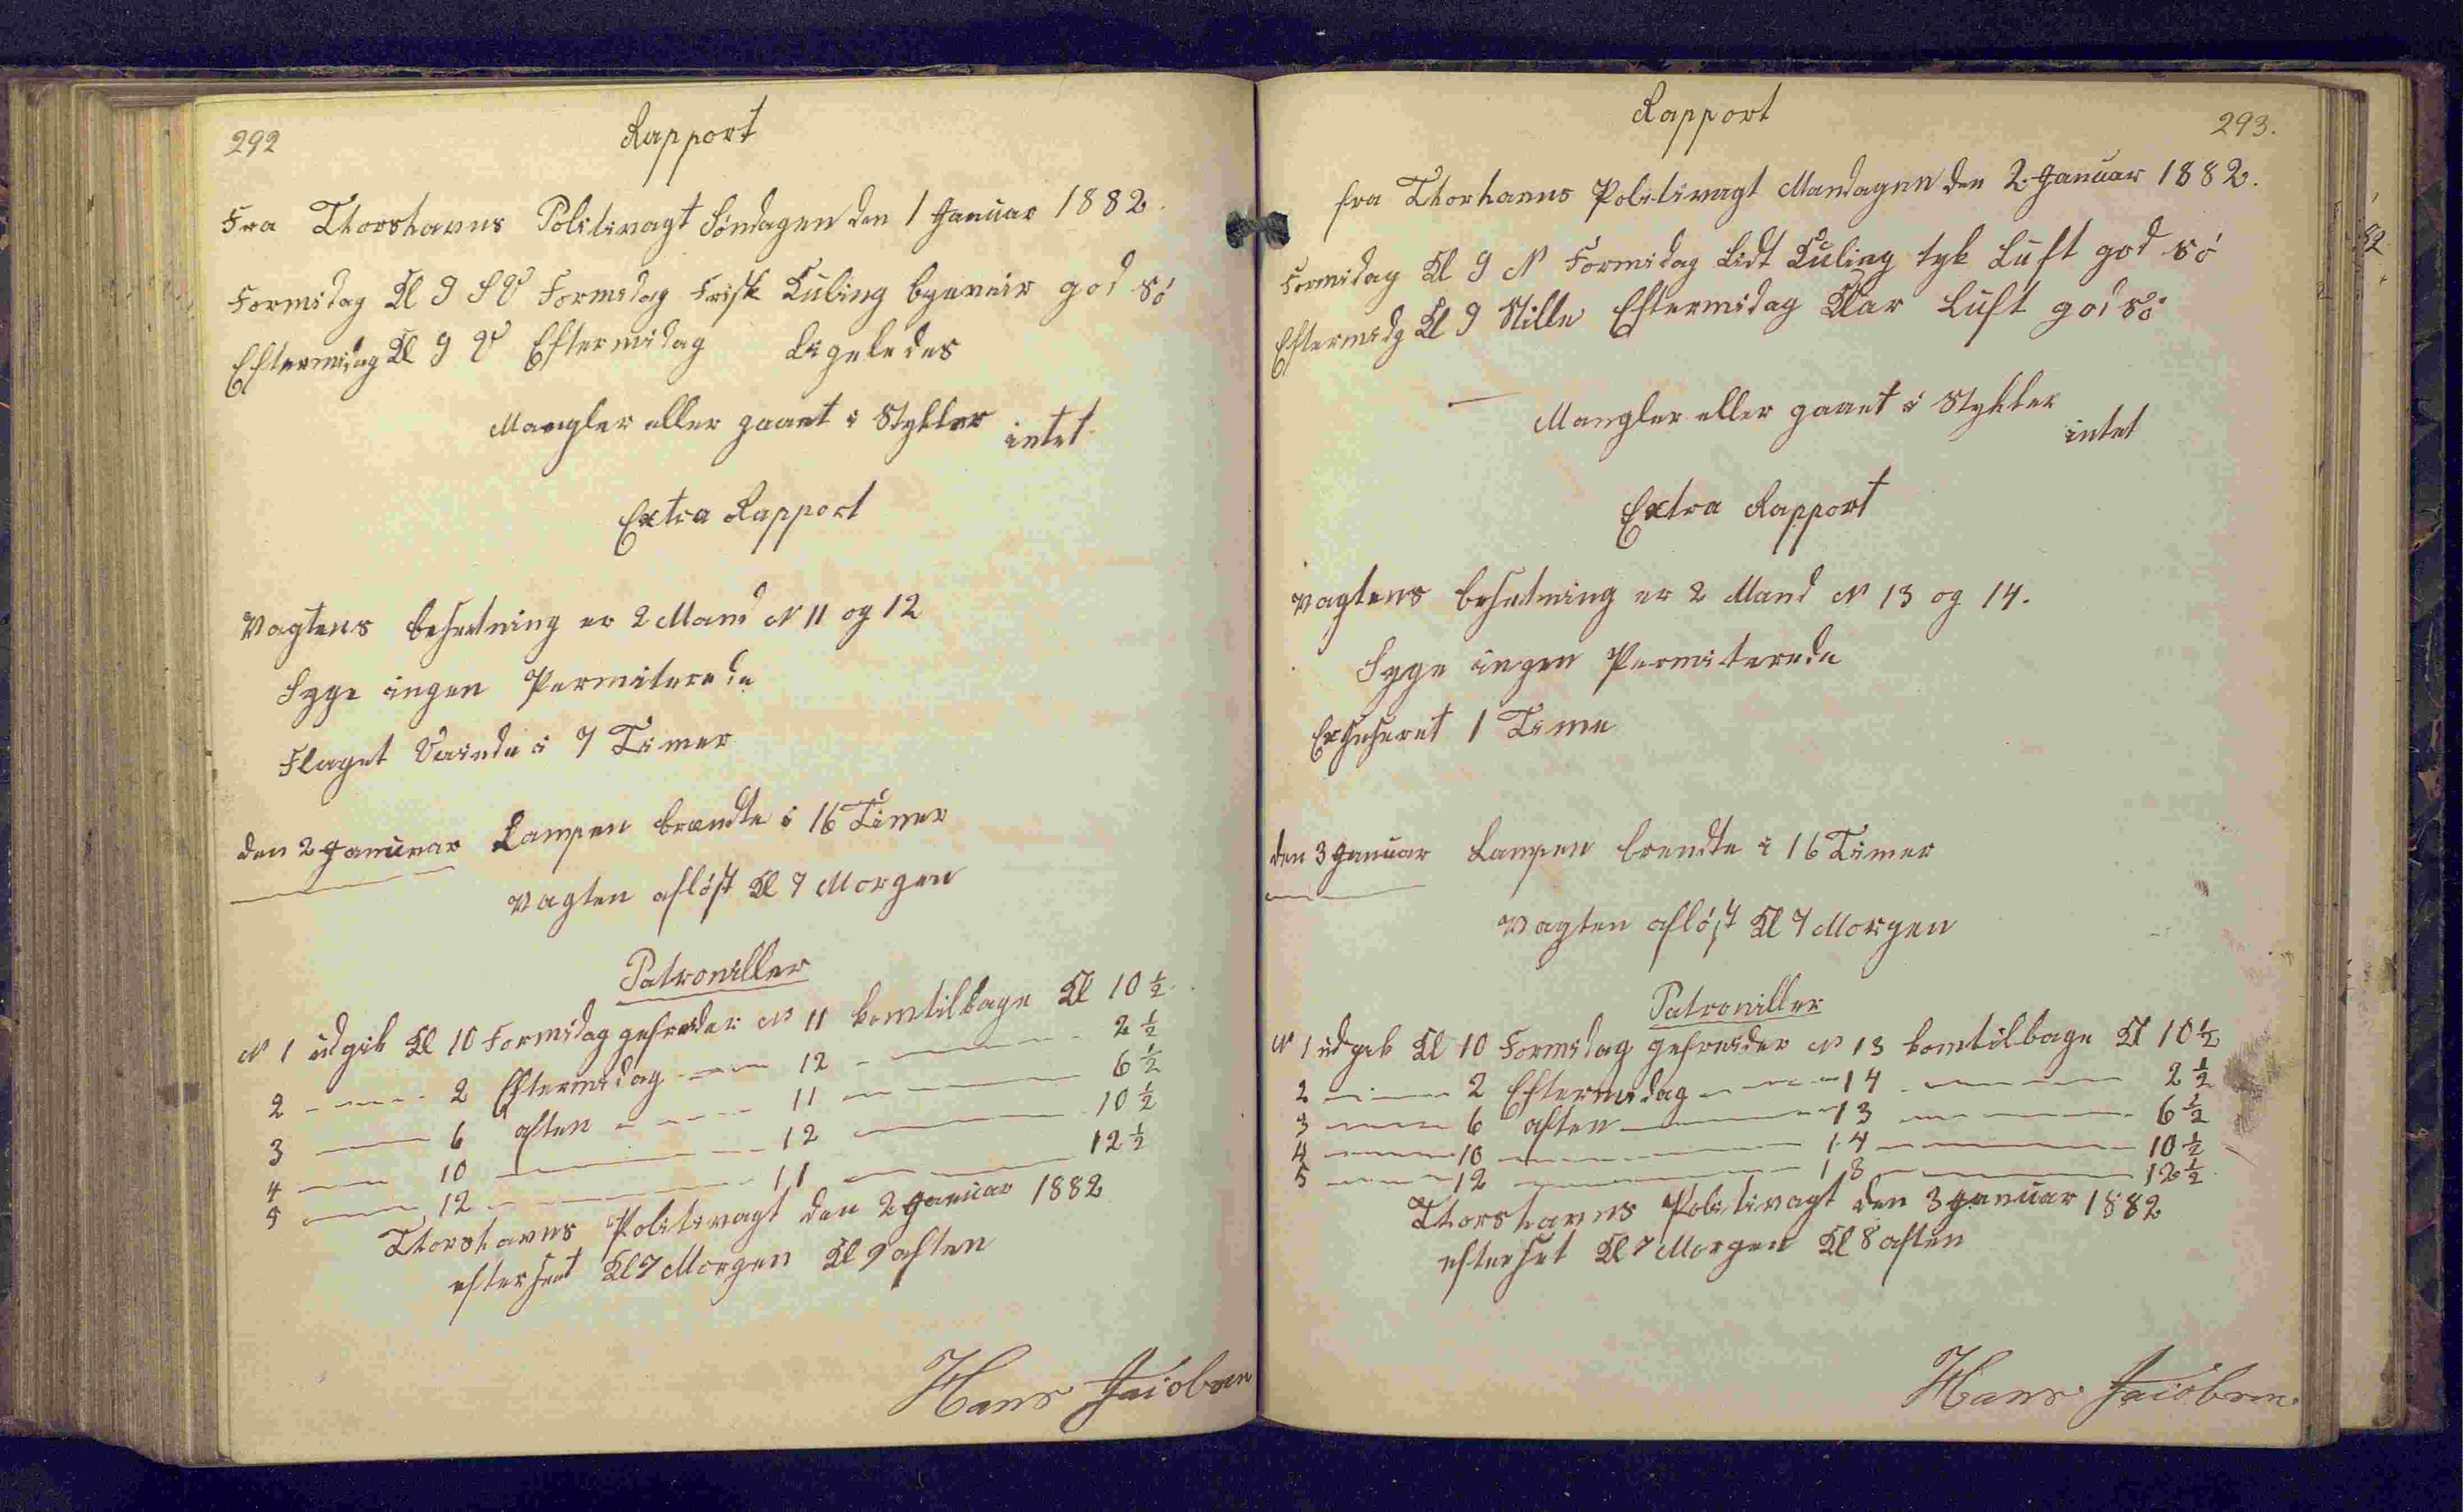 292
Rapport
Fra Thorshavns Politivagt Søndagen den 1 Januar 1882.
Formidag Kl 9 SV Formidag Frisk Kuling byeveir god Sö
Eftermidag Kl 9 V Eftermidag Ligeledes
Mangler eller gaaet i Stykker intet
Extra Rapport
Vagtens besætning er 2 Mand N 11 og 12
Syge ingen Permiterede
Flaget Vaiede i 7 Timer
den 2 Januar Lampen brændte i 16 Timer
Vagten afløst Kl 7 Morgen
Patroniller
N 1 udgik Kl 10 Formidag gefreider N 11 kom tilbage Kl 10 ½
2 — 2 Eftermidag — 12 — 2 ½
3 — 6 aften — 11 — 6 ½
4 — 10 — 12 — 10 ½
5 — 12 — 11 — 12 ½
Thorshavns Politivagt den 2 Januar 1882
efterseet Kl 7 Morgen Kl 9 aften
Hans Jacobsen
293.
Rapport
fra Thorhavns Politivagt Mandagen den 2 Januar 1882.
Formidag Kl 9 N Formidag Lidt Kuling tyk Luft god Sö
Eftermidg Kl 9 Stille Eftermidag Klar Luft god Sö
Mangler eller gaaet i Stykker
intet
Extra Rapport
Vagtens besætning er 2 Mand N 13 og 14.
Syge ingen Permiterede
Exseseret 1 Time
den 3 Januar Lampen brendte i 16 Timer
Vagten afløst Kl 7 Morgen
Patroniller
N 1 udgik Kl 10 Formidag gefreider N 13 kom tilbage Kl 10 ½
2 — 2 Eftermidag — 14 — 2 ½
3 — 6 aften — 13 — 6 ½
4 — 10 — 14 — 10 ½
5 — 12 — 13 — 12 ½
Thorshavns Politivagt den 3 Januar 1882
efterset Kl 7 Morgen Kl 8 aften
Hans Jacobsen.
82